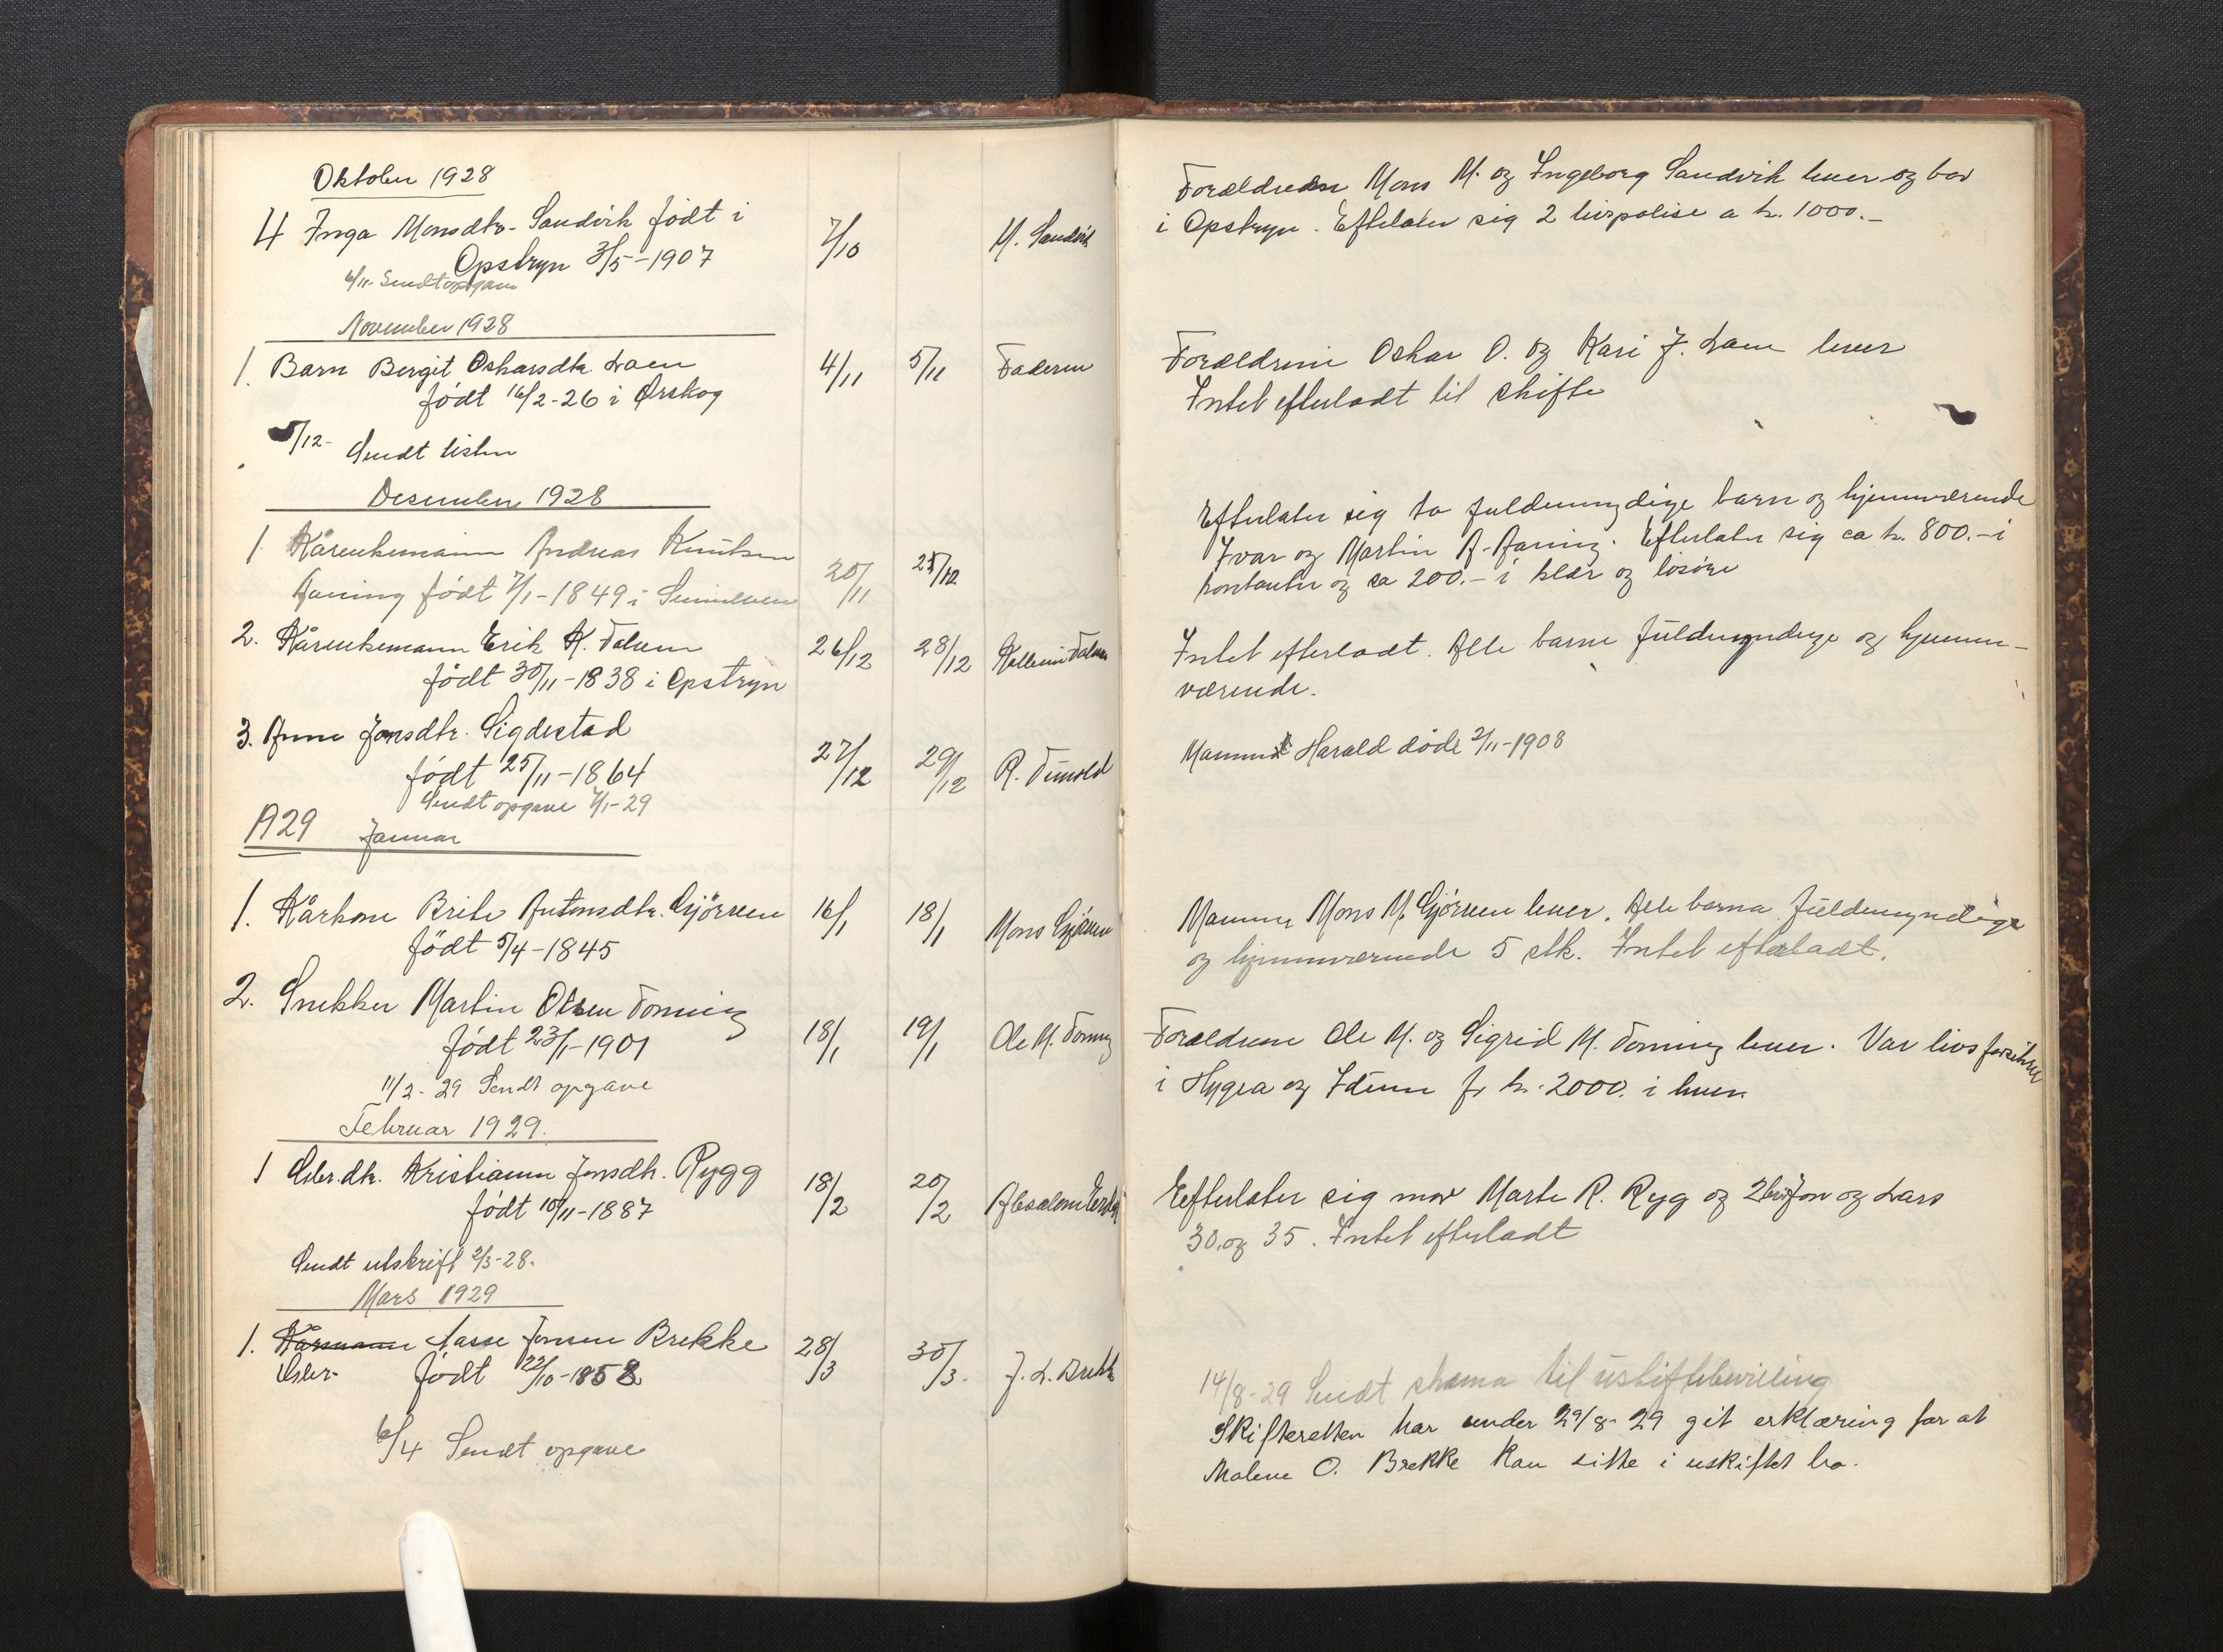 Oktober 1928
4 Inga Monsdtr. Sandvik født i
Opstryn 3/5-1907
7/10
M. Sandvik
6/11- Sendt opgave
November 1928
1. Barn Bergit Oskarsdtr. Loen
født 16/2-26 i Ørskog
4/11
5/11
Faderen
5/12- Sendt listen
Desember 1928
1 Kårenkemann Andreas Knutsen
Aaning født 7/1-1849 i Sunnelven
20/11
25/12
2. Kårenkemann Erik K. Folven
født 30/11-1838 i Opstryn
26/12
28/12
Folven
3. Anne Jonsdtr. Sigdestad
født 25/11-1864
27/12
29/12
R. Tunold
Sendt opgave 7/1-29
1929 Januar
1. Kårkone Brite Antonsdtr. Gjørven
født 5/4-1845
16/1
18/1
Mons Gjørven
2. Snekker Martin Olsen Tonning
født 23/1-1901
18/1
19/1
Ole M. Tonning
11/2-29 Sendt opgave
Februar 1929.
1 Gbr.dtr. Kristianna Jonsdtr. Rygg
født 10/11-1887
18/2
20/2
Absalom
Sendt utskrift 2/3-28.
Mars 1929
1. Kårmann Lasse Jonsen Brekke
Gbr- født 22/10-1858
28/3
30/3.
J. L. Brekke
6/4 Sendt opgave
Forældrene Mons M. og Ingeborg Sandvik lever og bor
i Opstryn. Efterlater sig 2 livspolise a kr. 1000.-
Forældrene Oskar O. og Kari J. Loen lever
Intet efterladt til skifte
Efterlater sig to fuldmyndige barn og hjemmværende
Ivar og Martin A. Aaning. Efterlater sig ca kr. 800.- i
kontanter og ca 200.- i klær og løsøre
Intet efterladt. Alle barna fuldmyndige og hjemm-
værende.
Mannen Harald døde 2/11-1908
Mannen Mons M. Gjørven lever. Alle barna fuldmyndige
og hjemmværende 5 stk. Intet efterladt.
Forældrene Ole M. og Sigrid M. Tonning lever. Var livsforsikret
i Hygea og Idun fr kr. 2000. i hver.
Eefterlater sig mor Marte R. Ryg og 2 brø Jon og Lars
30. og 35. Intet efterladt
14/8-29 Sendt skema til uskiftebevilling
Skifteretten har under 29/8-29 git erklæring for at
Malene O. Brekke kan sitte i uskiftet bo.